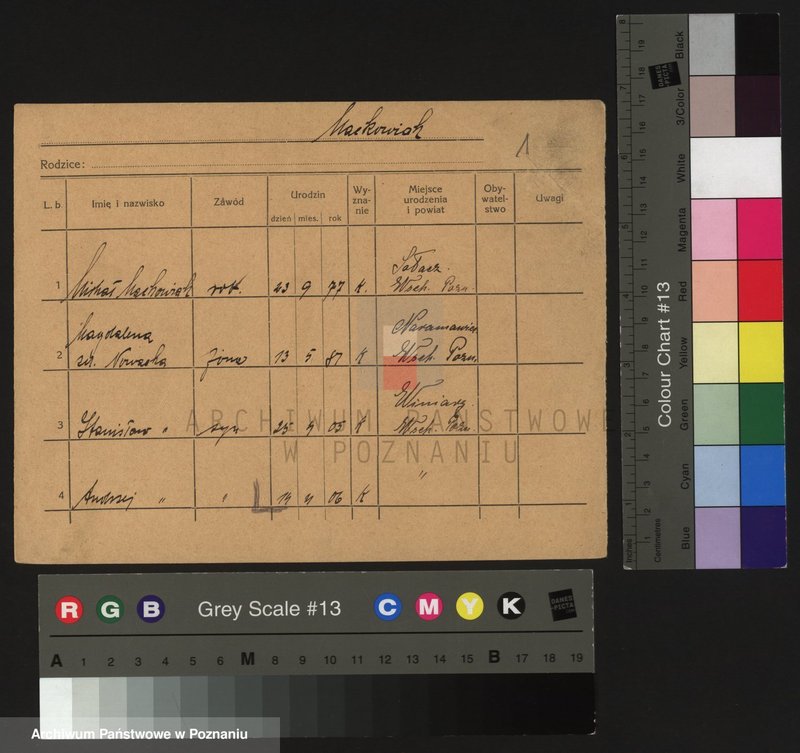 Maćkowiak
1
Rodzice:
L. b. Imię i nazwisko Zawód Urodzin Wy-zna-nie Miejsce urodzenia i powiat Oby-watel-stwo Uwagi
dzień mies. rok
Sołacz.
1 Michał Maćkowiak rob. 23 9 77 K. Wsch. Pozn.
Magdalena Naramowice
2 Nowacka żona 13 5 87 K Wsch. Pozn.
Winiary
3 Stanisław " syn 25 4 05 K Wsch. Pozn.
4 Andrzej " " 14 11 06 K "
ARCHIWUM PAŃSTWOWE
W POZNANIU
R G B Grey Scale #13 C M Y K
DANES
-PICTA
.COM
A 1 2 3 4 5 6 M 8 9 10 11 12 13 14 15 B 17 18 19
Archiwum Państwowe w Poznaniu
Colour Chart #13
Blue Cyan Green Yellow Red Magenta White 3/Color Black
Inches 1 2 3 4 5 6 7
Centimetres 1 2 3 4 5 6 7 8 9 10 11 12 13 14 15 16 17 18 19
DANES
-PICTA
.COM